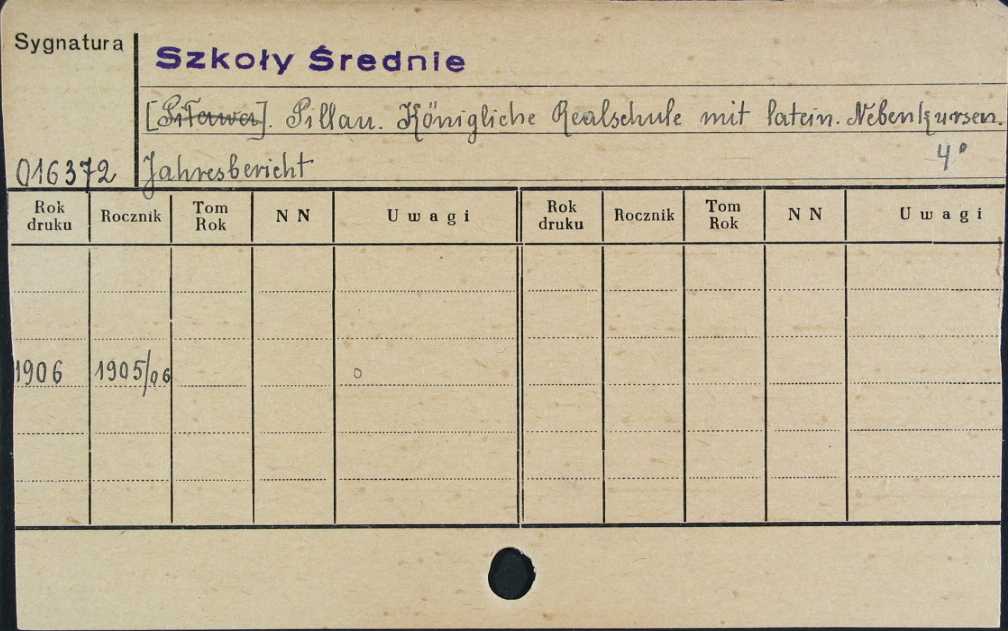 Sygnatura
Szkoły Średnie
[Piława]. Pillau. Königliche Realschule mit latein. Nebenkursen.
4°
016372 Jahresbericht
Rok druku Rocznik Tom Rok N N Uwagi Rok druku Rocznik Tom Rok N N Uwagi
1906 1905/06 o